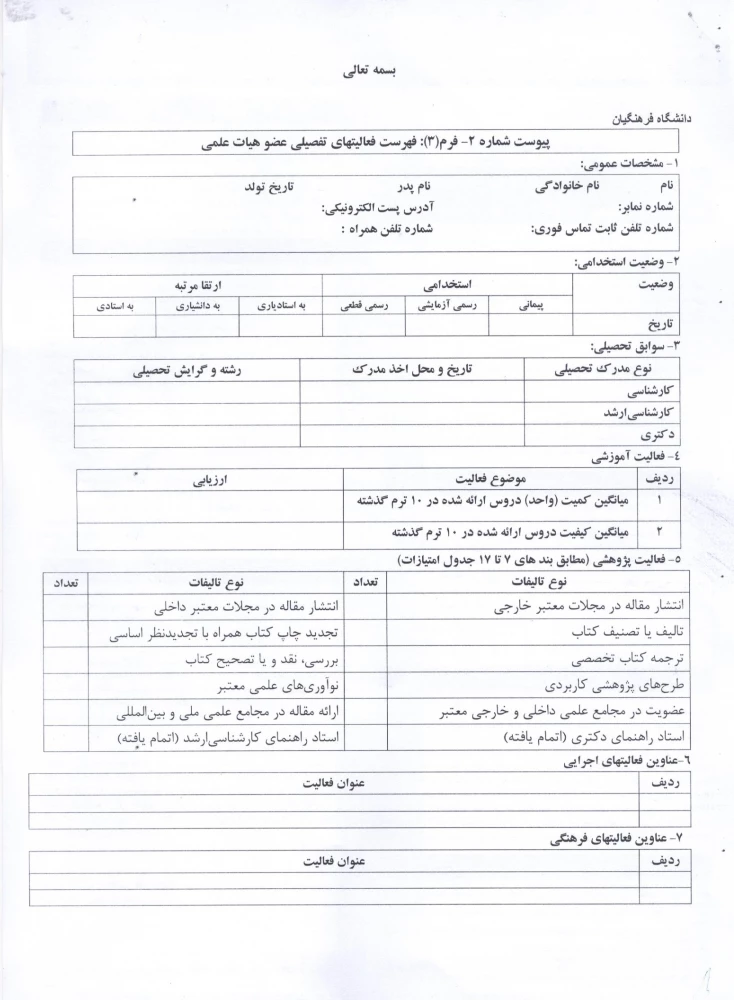 بسمه تعالی
دانشگاه فرهنگیان
پیوست شماره ۲- فرم(۳): فهرست فعالیتهای تفصیلی عضو هیات علمی
۱- مشخصات عمومی:
نام نام خانوادگی نام پدر تاریخ تولد
شماره نمابر: آدرس پست الکترونیکی:
شماره تلفن ثابت تماس فوری: شماره تلفن همراه :
۲- وضعیت استخدامی:
وضعیت استخدامی ارتقا مرتبه
پیمانی رسمی آزمایشی رسمی قطعی به استادیاری به دانشیاری به استادی
تاریخ
۳- سوابق تحصیلی:
نوع مدرک تحصیلی تاریخ و محل اخذ مدرک رشته و گرایش تحصیلی
کارشناسی
کارشناسی ارشد
دکتری
٤- فعالیت آموزشی
ردیف موضوع فعالیت ارزیابی
۱ میانگین کمیت (واحد) دروس ارائه شده در ۱۰ ترم گذشته
۲ میانگین کیفیت دروس ارائه شده در ۱۰ ترم گذشته
۵- فعالیت پژوهشی (مطابق بند های ۷ تا ۱۷ جدول امتیازات)
نوع تالیفات تعداد نوع تالیفات تعداد
انتشار مقاله در مجلات معتبر خارجی انتشار مقاله در مجلات معتبر داخلی
تالیف یا تصنیف کتاب تجدید چاپ کتاب همراه با تجدیدنظر اساسی
ترجمه کتاب تخصصی بررسی، نقد و یا تصحیح کتاب
طرح‌های پژوهشی کاربردی نوآوری‌های علمی معتبر
عضویت در مجامع علمی داخلی و خارجی معتبر ارائه مقاله در مجامع علمی ملی و بین‌المللی
استاد راهنمای دکتری (اتمام یافته) استاد راهنمای کارشناسی‌ارشد (اتمام یافته)
٦-عناوین فعالیتهای اجرایی
ردیف عنوان فعالیت
۷- عناوین فعالیتهای فرهنگی
ردیف عنوان فعالیت